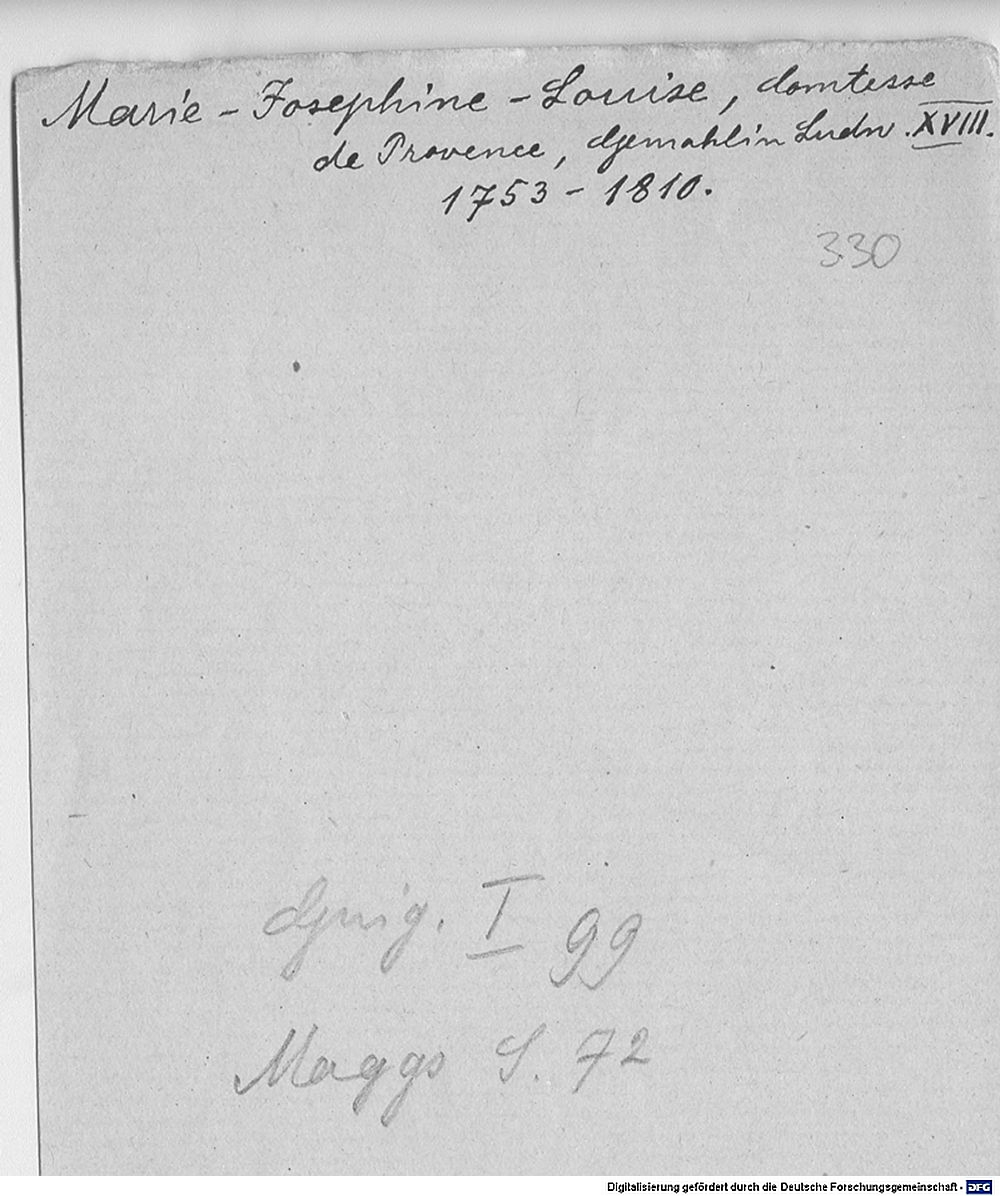 Marie - Josephine - Louise, Comtesse
de Provence, Gemahlin Ludw. XVIII.
1753 - 1810.
330
Guig. I 99
Maggs S. 72
Digitalisierung gefördert durch die Deutsche Forschungsgemeinschaft - DFG